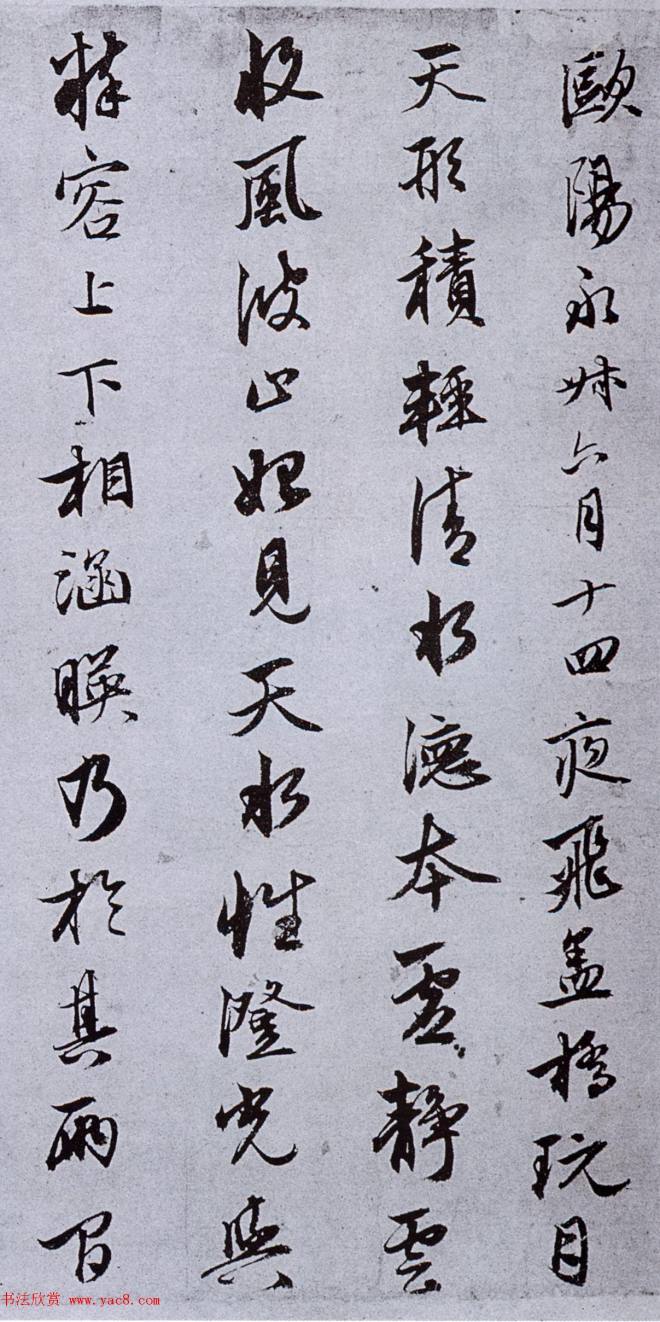 歐陽永叔六月十四夜飛盖橋玩月
天形積輕清水德本虛靜雲
收風波止始見天水性澄光與
粹容上下相涵映乃於其兩間
书法欣赏 www.yac8.com